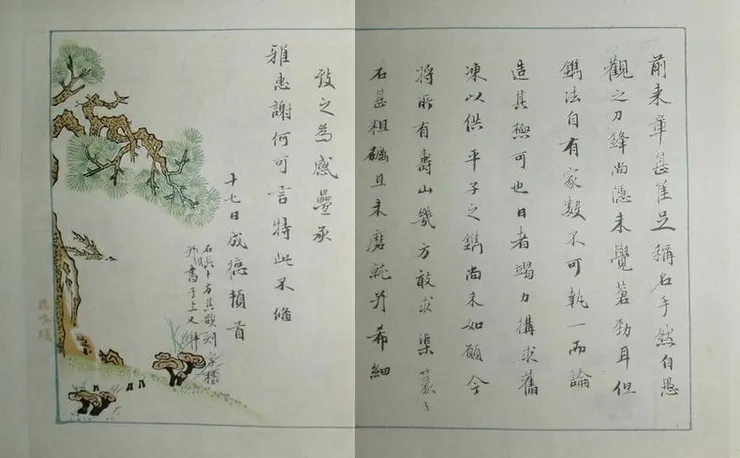 前来章甚佳足称名手然自愚
觀之刀鋒尚隱未覺蒼勁耳但
鐫法自有家數不可執一而論
造其極可也日者竭力搆求舊
凍以供平子之鐫尚未如願今
將所有壽山幾方敢求渠篆之
石甚粗礪且未磨就并希細
致之為感疊承
雅惠謝何可言特此不備
十七日成德頓首
石共十方其欲刻
書于上又拜